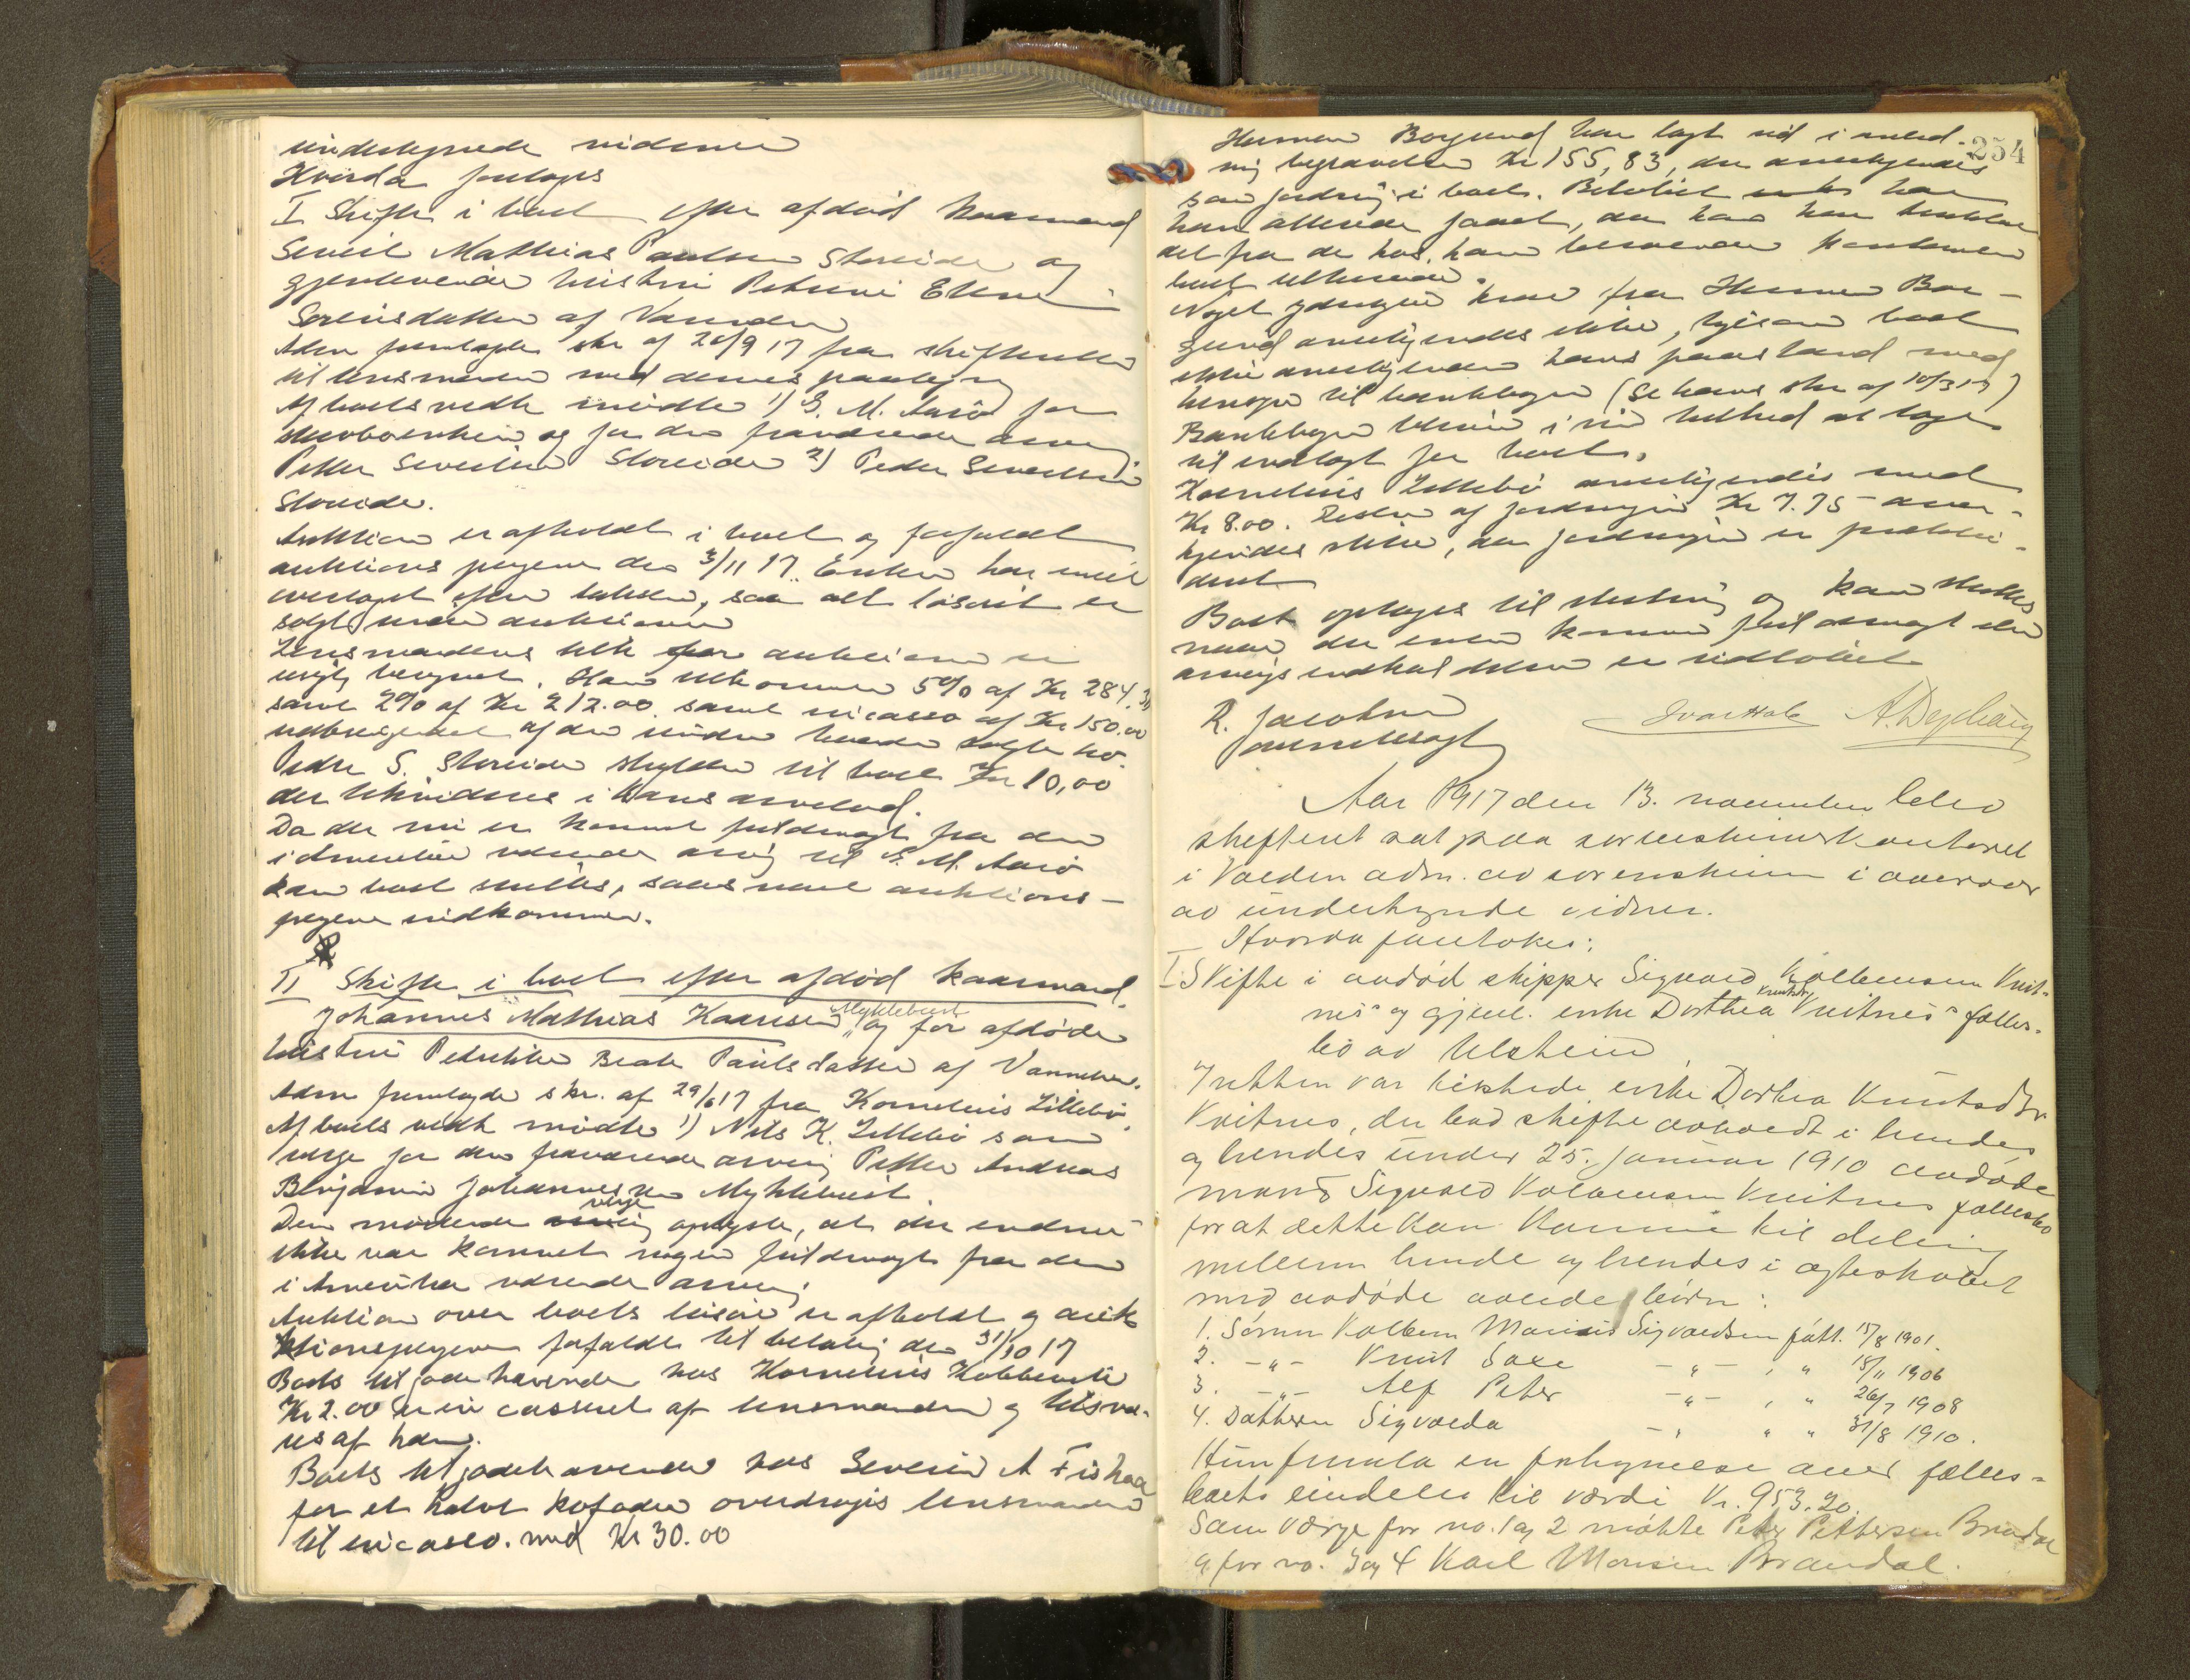 undertegnede vidner
Hvorda foretoges
I Skifte i boet efter afdød kaarmand
Severt Mathias Paulsen Storeide og
gjenlevende hustru Petrine Eline
Sørensdatter af Vannelven
Adm fremlagde skr af 20/9 17 fra skifteretten
til lensmanden med dennes paategning
Af boets vedk mødte 1) S. M. Aasø for
og for den fraværende arving
Petter Severtsen Storeide 2) Peder Severtsen
Storeide.
Auktion er afholdt i boet og forfaldt
auktions pengene den 3/11 17. Enken har intet
overtaget efter taksten, saa alt løsøret er
solgt under auktionen
Lensmandens tilk for auktionen er
urigtig beregnet. Han tilkommer 5% af Kr 284.
samt 2% af Kr 212.00 samt incasso af Kr 150.00
af den under solgte ko.
Peder S. Storeide skylder til boet Kr 10,00
der i hans arvelod.
Da der nu er kommet fuldmagt fra den
i Amerika værende arving til S. M. Aasø
kan boet sluttes, saasnart auktions-
pengene indkommer.
II Skifte i boet efter afdød kaarmand
Johannes Mathias Knutsen Myklebust og før afdøde
hustru Petrikke Beate Paulsdatter af Vannelven.
Adm fremlagde skr. af 29/6 17 fra Kornelius Lillebø.
Af boets vedk mødte 1) Nils K. Lillebø som
verge for den fraværende arving Petter Andreas
Benjamin Johannessen Myklebust.
Den mødende verge oplyste, at der endnu
ikke var kommet nogen fuldmagt fra den
i Amerika værende arving
Auktion over boets løsøre er afholdt og auk
tionspengene forfaldt til betaling den 31/10 17
Boets tilgodehavende hos Kornelius
Kr 2.00 er in casseret af lensmanden og tilsva-
res af ham.
Boets tilgodehavende hos Severin A Fiskaa
for et halvt kofoder overdrages lensmanden
til incasso. med Kr 30.00
254
Herman Borgund har lagt ud i anled-
ning begravelsen Kr 155,83, der anerkjendes
som fordring i boet. Beløbet har
han allerede faaet, da han har trukket
det fra de hos ham beroende kontanter
boet tilhørende.
Noget yderligere krav fra Herman Bor-
gund anerkjendes ikke, ligesom boet
ikke anerkjender hans paastand med
hensyn til bankbogen (se hans skr af 10/3 17)
Bankbogen i sin helhed at tages
til indtægt for boet.
Kornelius Lillebø anerkjendes med
Kr 8.00. Resten af fordringen Kr 7.75 aner-
kjendes ikke, da fordringen er præklu-
deret
Boet optages til slutning og kan sluttes
naar der enten kommer fuldmagt eller
arvingsindkaldelsen er udløbet
R. Jacobsen
Ivar Hole A. Dypvaag
Aar 1917 den 13. november blev
skifteret sat paa sorenskriverkontoret
i Volden adm. av sorenskriver i overvær
av undertegnede vidner.
Hvorda foretokes:
I. Skifte i avdød skipper Sigvald Kolbensen Kvit-
nes og gjenl. enke Dorthea Knutsdr Kvitnes fælles-
bo av Ulstein
I retten var tilstede enke Dorthea Knutsdtr
Kvitnes, der bad skifte avholdt i hendes
og hendes under 25. januar 1910 avdøde
mand Sigvald Kolbensen Kvitnes fællesbo
for at dette kan komme til deling
mellem hende og hendes i egteskabet
med avdøde avlede børn:
1. Sønnen Kolben Marius Sigvaldsen født 15/8 1901.
2. -"- Knut Saxe -"- , " 18/11 1906
3. -"- Alf Peter -"- , " 26/7 1908
4. Datteren Sigvalda -"- " " 31/8 1910.
Hun fremla en fortegnelse over fælles-
boets eiendeler til værdi Kr. 953.20.
Som værge for no. 1 og 2 møtte Peter Pettersen Brandal
og for no. 3 og 4 Karl Monsen Brandal.